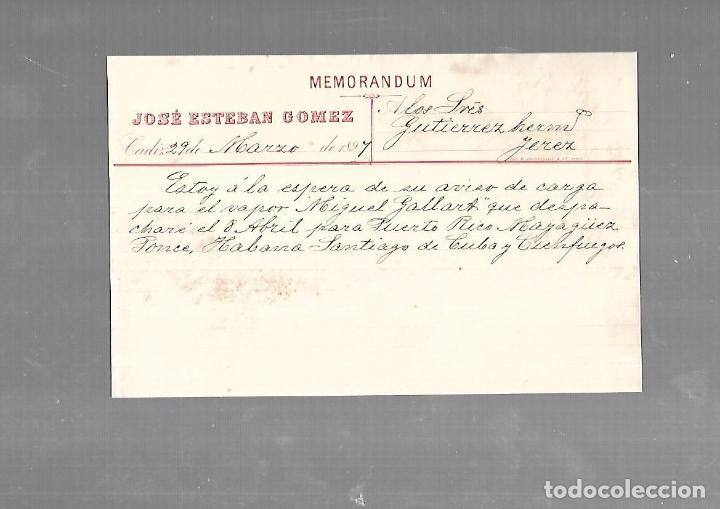 MEMORANDUM
JOSÉ ESTEBAN GOMEZ
Cadiz 29 de Marzo de 1897
A los Srés
Gutierrez hermos
Jerez
Estoy á la espera de su aviso de carga
para el vapor "Miguel Gallart" que despa-
charé el 8 Abril para Puerto Rico Mayagüez
Ponce, Habana-Santiago de Cuba y Cienfuegos.
todocoleccion.net